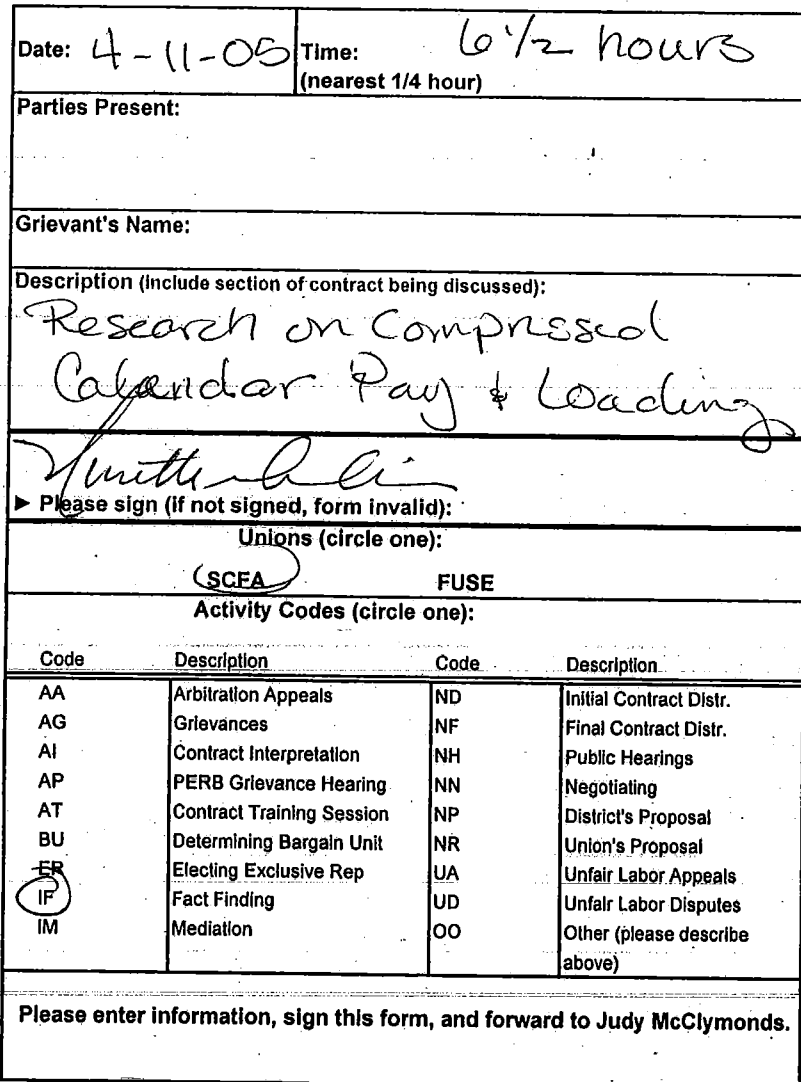 Date: 4-11-05 Time: 6 1/2 hours
(nearest 1/4 hour)
Parties Present:
Grievant's Name:
Description (include section of contract being discussed):
Research on Compressed
Calendar Pay & Loading
► Please sign (if not signed, form invalid):
Unions (circle one):
SCFA FUSE
Activity Codes (circle one):
Code Description Code Description
AA Arbitration Appeals ND Initial Contract Distr.
AG Grievances NF Final Contract Distr.
AI Contract Interpretation NH Public Hearings
AP PERB Grievance Hearing NN Negotiating
AT Contract Training Session NP District's Proposal
BU Determining Bargain Unit NR Union's Proposal
ER Electing Exclusive Rep UA Unfair Labor Appeals
IF Fact Finding UD Unfair Labor Disputes
IM Mediation OO Other (please describe
above)
Please enter information, sign this form, and forward to Judy McClymonds.